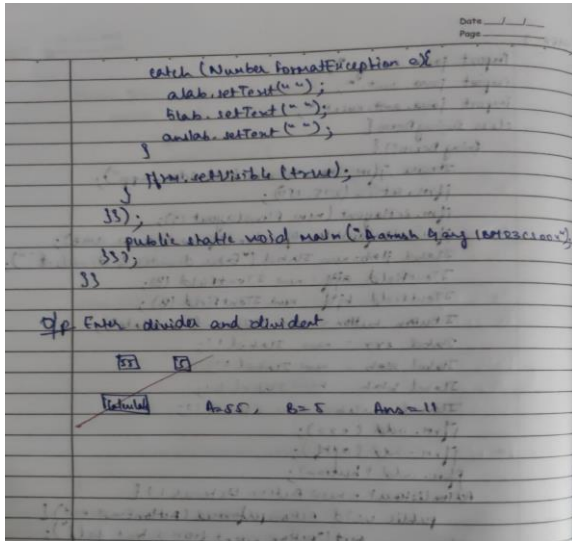 Date
Page
catch (Number FormatException e){
alab.setText(" ");
blab.setText(" ");
anslab.setText(" ");
}
jfrm.setVisible (true);
}
}});
public static void main("
}});
}}
O/p Enter divider and divident
55 5
Calculate A=55, B=5 Ans=11